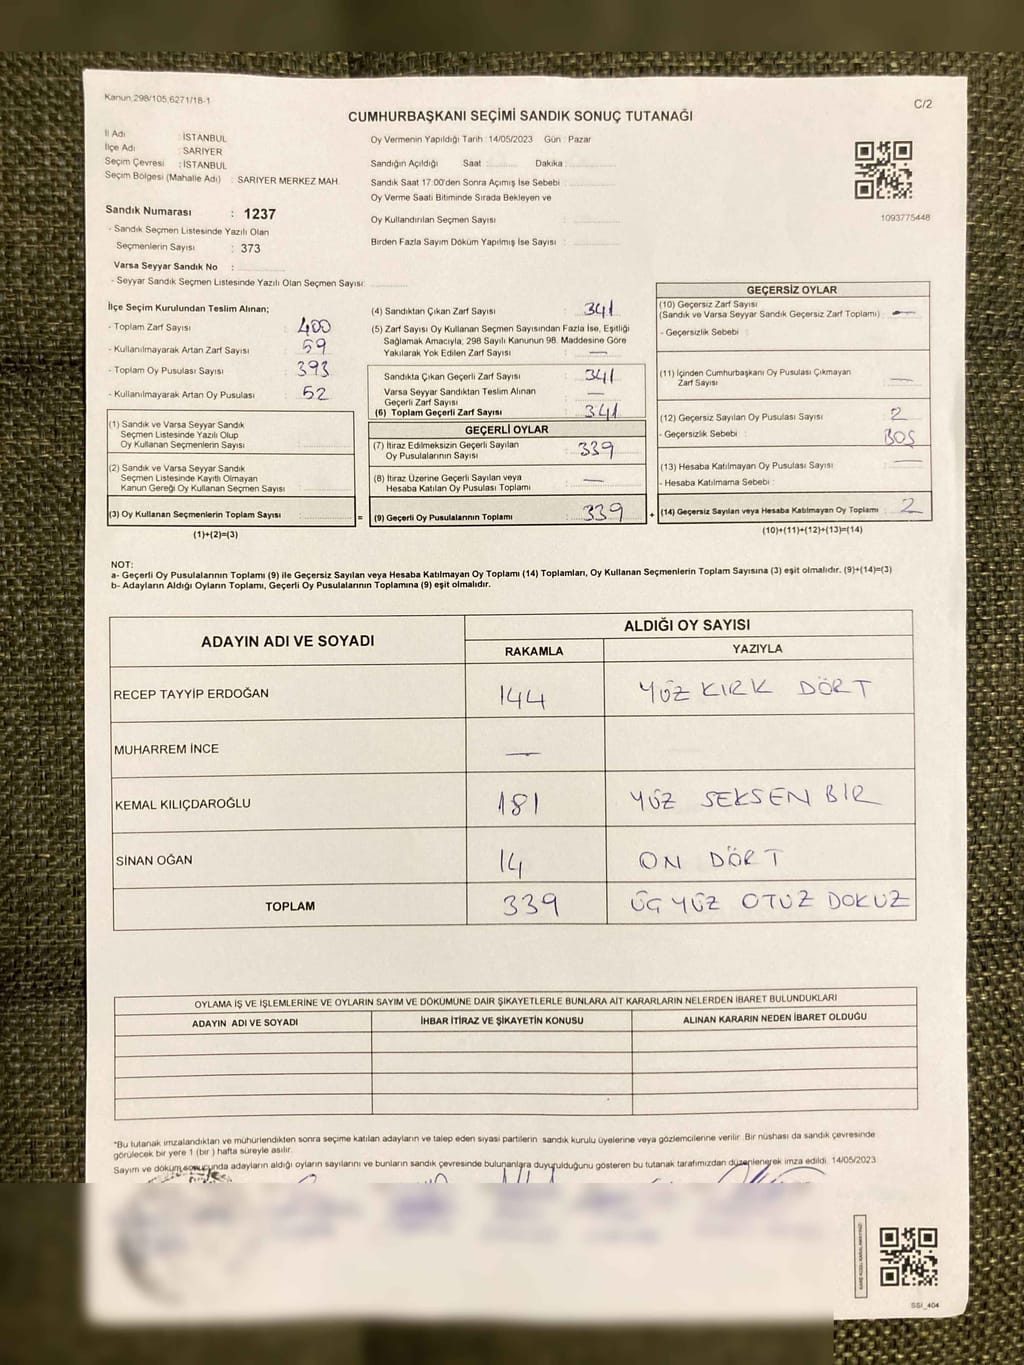 Kanun 298/105,6271/18-1
C/2
CUMHURBAŞKANI SEÇİMİ SANDIK SONUÇ TUTANAĞI
İl Adı : İSTANBUL
İlçe Adı : SARIYER
Seçim Çevresi : İSTANBUL
Seçim Bölgesi (Mahalle Adı) : SARIYER MERKEZ MAH.
Sandık Numarası : 1237
- Sandık Seçmen Listesinde Yazılı Olan
Seçmenlerin Sayısı : 373
Varsa Seyyar Sandık No :
- Seyyar Sandık Seçmen Listesinde Yazılı Olan Seçmen Sayısı:
Oy Vermenin Yapıldığı Tarih :14/05/2023 Gün : Pazar
Sandığın Açıldığı Saat : Dakika :
Sandık Saat 17:00'den Sonra Açımış İse Sebebi :
Oy Verme Saati Bitiminde Sırada Bekleyen ve
Oy Kullandırılan Seçmen Sayısı :
Birden Fazla Sayım Döküm Yapılmış İse Sayısı :
1093775448
İlçe Seçim Kurulundan Teslim Alınan;
- Toplam Zarf Sayısı : 400
- Kullanılmayarak Artan Zarf Sayısı : 59
- Toplam Oy Pusulası Sayısı : 393
- Kullanılmayarak Artan Oy Pusulası : 52
(1) Sandık ve Varsa Seyyar Sandık
Seçmen Listesinde Yazılı Olup
Oy Kullanan Seçmenlerin Sayısı :
(2) Sandık ve Varsa Seyyar Sandık
Seçmen Listesinde Kayıtlı Olmayan
Kanun Gereği Oy Kullanan Seçmen Sayısı :
(3) Oy Kullanan Seçmenlerin Toplam Sayısı : =
(1)+(2)=(3)
(4) Sandıktan Çıkan Zarf Sayısı : 341
(5) Zarf Sayısı Oy Kullanan Seçmen Sayısından Fazla İse, Eşitliği
Sağlamak Amacıyla, 298 Sayılı Kanunun 98. Maddesine Göre
Yakılarak Yok Edilen Zarf Sayısı : —
Sandıkta Çıkan Geçerli Zarf Sayısı : 341
Varsa Seyyar Sandıktan Teslim Alınan
Geçerli Zarf Sayısı : —
(6) Toplam Geçerli Zarf Sayısı : 341
GEÇERLİ OYLAR
(7) İtiraz Edilmeksizin Geçerli Sayılan
Oy Pusulalarının Sayısı : 339
(8) İtiraz Üzerine Geçerli Sayılan veya
Hesaba Katılan Oy Pusulası Toplamı : —
(9) Geçerli Oy Pusulalarının Toplamı : 339 +
GEÇERSİZ OYLAR
(10) Geçersiz Zarf Sayısı
(Sandık ve Varsa Seyyar Sandık Geçersiz Zarf Toplamı) : —
- Geçersizlik Sebebi :
(11) İçinden Cumhurbaşkanı Oy Pusulası Çıkmayan
Zarf Sayısı : —
(12) Geçersiz Sayılan Oy Pusulası Sayısı : 2
- Geçersizlik Sebebi : BOŞ
(13) Hesaba Katılmayan Oy Pusulası Sayısı : —
- Hesaba Katılmama Sebebi :
(14) Geçersiz Sayılan veya Hesaba Katılmayan Oy Toplamı : 2
(10)+(11)+(12)+(13)=(14)
NOT:
a- Geçerli Oy Pusulalarının Toplamı (9) ile Geçersiz Sayılan veya Hesaba Katılmayan Oy Toplamı (14) Toplamları, Oy Kullanan Seçmenlerin Toplam Sayısına (3) eşit olmalıdır. (9)+(14)=(3)
b- Adayların Aldığı Oyların Toplamı, Geçerli Oy Pusulalarının Toplamına (9) eşit olmalıdır.
ADAYIN ADI VE SOYADI
ALDIĞI OY SAYISI
RAKAMLA YAZIYLA
RECEP TAYYİP ERDOĞAN 144 YÜZ KIRK DÖRT
MUHARREM İNCE —
KEMAL KILIÇDAROĞLU 181 YÜZ SEKSEN BİR
SİNAN OĞAN 14 ON DÖRT
TOPLAM 339 ÜÇ YÜZ OTUZ DOKUZ
OYLAMA İŞ VE İŞLEMLERİNE VE OYLARIN SAYIM VE DÖKÜMÜNE DAİR ŞİKAYETLERLE BUNLARA AİT KARARLARIN NELERDEN İBARET BULUNDUKLARI
ADAYIN ADI VE SOYADI İHBAR İTİRAZ VE ŞİKAYETİN KONUSU ALINAN KARARIN NEDEN İBARET OLDUĞU
*Bu tutanak imzalandıktan ve mühürlendikten sonra seçime katılan adayların ve talep eden siyasi partilerin sandık kurulu üyelerine veya gözlemcilerine verilir. Bir nüshası da sandık çevresinde
görülecek bir yere 1 (bir ) hafta süreyle asılır.
Sayım ve döküm sonucunda adayların aldığı oyların sayılarını ve bunların sandık çevresinde bulunanlara duyurulduğunu gösteren bu tutanak tarafımızdan düzenlenerek imza edildi. 14/05/2023
SSI_404